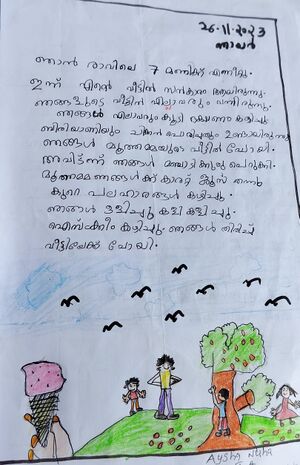 26.11.2023
ഞായർ
ഞാൻ രാവിലെ 7 മണിക്ക് എണീറ്റു.
ഇന്ന് എന്റെ വീട്ടിൽ സൽകാരം ആയിരുന്നു.
ഞങ്ങളുടെ വീട്ടിൽ എല്ലാവരും വന്നിരുന്നു.
ഞങ്ങൾ എല്ലാവരും കൂടി ഭക്ഷണം കഴിച്ചു.
ബിരിയാണിയും ചിക്കൻ പൊരിച്ചതും ഉണ്ടായിരുന്നു.
ഞങ്ങൾ മൂത്തമ്മയുടെ വീട്ടിൽ പോയി.
അവിടന്ന് ഞങ്ങൾ മഞ്ചാടിക്കുരു പെറുക്കി.
മൂത്തമ്മ ഞങ്ങൾക്ക് കാരറ്റ് ജ്യൂസ് തന്നു
കുറെ പലഹാരങ്ങൾ കഴിച്ചു.
ഞങ്ങൾ ഒളിച്ചു കളി കളിച്ചു.
ഐസ്ക്രീം കഴിച്ചു. ഞങ്ങൾ തിരിച്ച്
വീട്ടിലേക്ക് പോയി.
Aysha Nuha